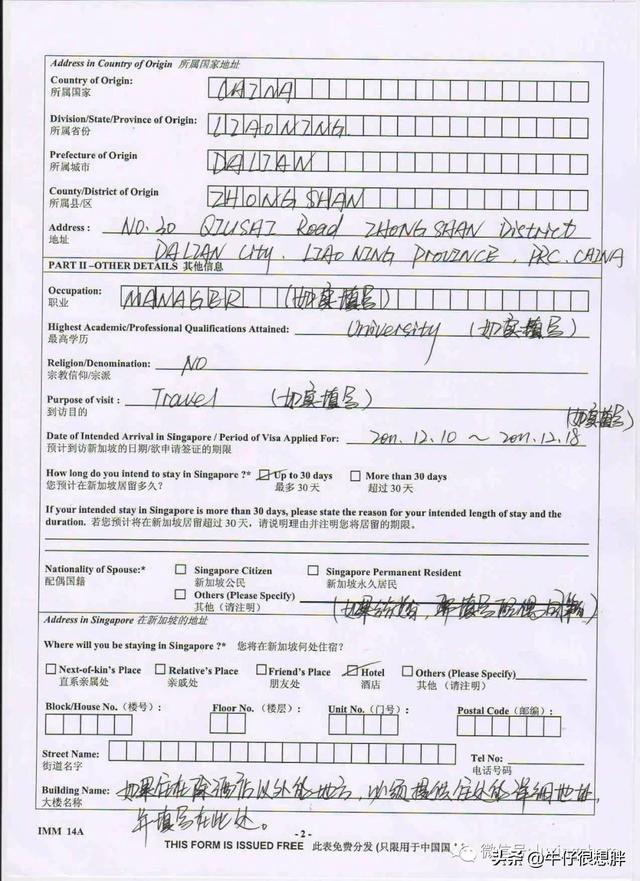 Address in Country of Origin 所属国家地址
Country of Origin: CHINA
所属国家
Division/State/Province of Origin: LIAONING
所属省份
Prefecture of Origin DALIAN
所属城市
County/District of Origin ZHONG SHAN
所属县/区
Address : NO.30 QIUSHI Road ZHONGSHAN District
地址 DALIAN City. LIAONING PROVINCE . PRC. CHINA
PART II –OTHER DETAILS 其他信息
Occupation: MANAGER (如实填写)
职业
Highest Academic/Professional Qualifications Attained: University (如实填写)
最高学历
Religion/Denomination: NO
宗教信仰/宗派
Purpose of visit : Travel (如实填写)
到访目的
(如实填写)
Date of Intended Arrival in Singapore / Period of Visa Applied For: 2011.12.10 ~ 2011.12.18
预计到访新加坡的日期/欲申请签证的期限
How long do you intend to stay in Singapore ?* Up to 30 days More than 30 days
您预计在新加坡居留多久? 最多 30 天 超过 30 天
If your intended stay in Singapore is more than 30 days, please state the reason for your intended length of stay and the
duration. 若您预计将在新加坡居留超过 30 天, 请说明理由并注明您将居留的期限。
Nationality of Spouse:* Singapore Citizen Singapore Permanent Resident
配偶国籍 新加坡公民 新加坡永久居民
Others (Please Specify)
其他 (请注明) (如果结婚, 填写配偶国籍)
Address in Singapore 在新加坡的地址
Where will you be staying in Singapore ?* 您将在新加坡何处住宿?
Next-of-kin's Place Relative's Place Friend's Place Hotel Others (Please Specify)
直系亲属处 亲戚处 朋友处 酒店 其他 (请注明)
Block/House No. (楼号): Floor No. (楼层): Unit No. (门号): Postal Code (邮编):
Street Name: Tel No:
街道名字 电话号码
Building Name: 如果住在除酒店以外的地方, 必须提供住处的详细地址,
大楼名称 并填写在此处。
IMM 14A
- 2 -
THIS FORM IS ISSUED FREE 此表免费分发 (只限用于中国国
微信号:
头条 @牛仔很想胖